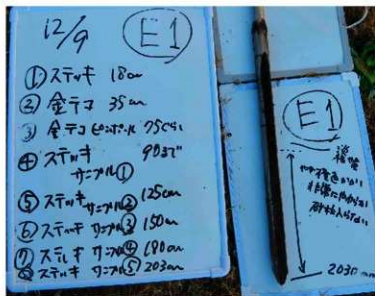 12/9 E1
① ステッキ 18cm
② 金テコ 35cm
③ 金テコ ピンポール 75cmくらい
④ ステッキ 90まで
サンプル①
⑤ ステッキ サンプル② 125cm
⑥ ステッキ サンプル③ 150cm
⑦ ステッキ サンプル④ 190cm
⑧ ステッキ サンプル⑤ 203cm
E1
203cm